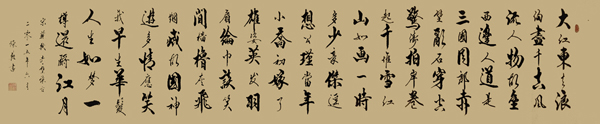 大江東去浪
淘盡千古風
流人物故壘
西邊人道是
三國周郎赤
壁亂石穿空
驚濤拍岸卷
起千堆雪江
山如畫一時
多少豪傑遙
想公瑾當年
小喬初嫁了
雄姿英發羽
扇綸巾談笑
間檣櫓灰飛
煙滅故國神
遊多情應笑
我早生華髮
人生如夢一
樽還酹江月